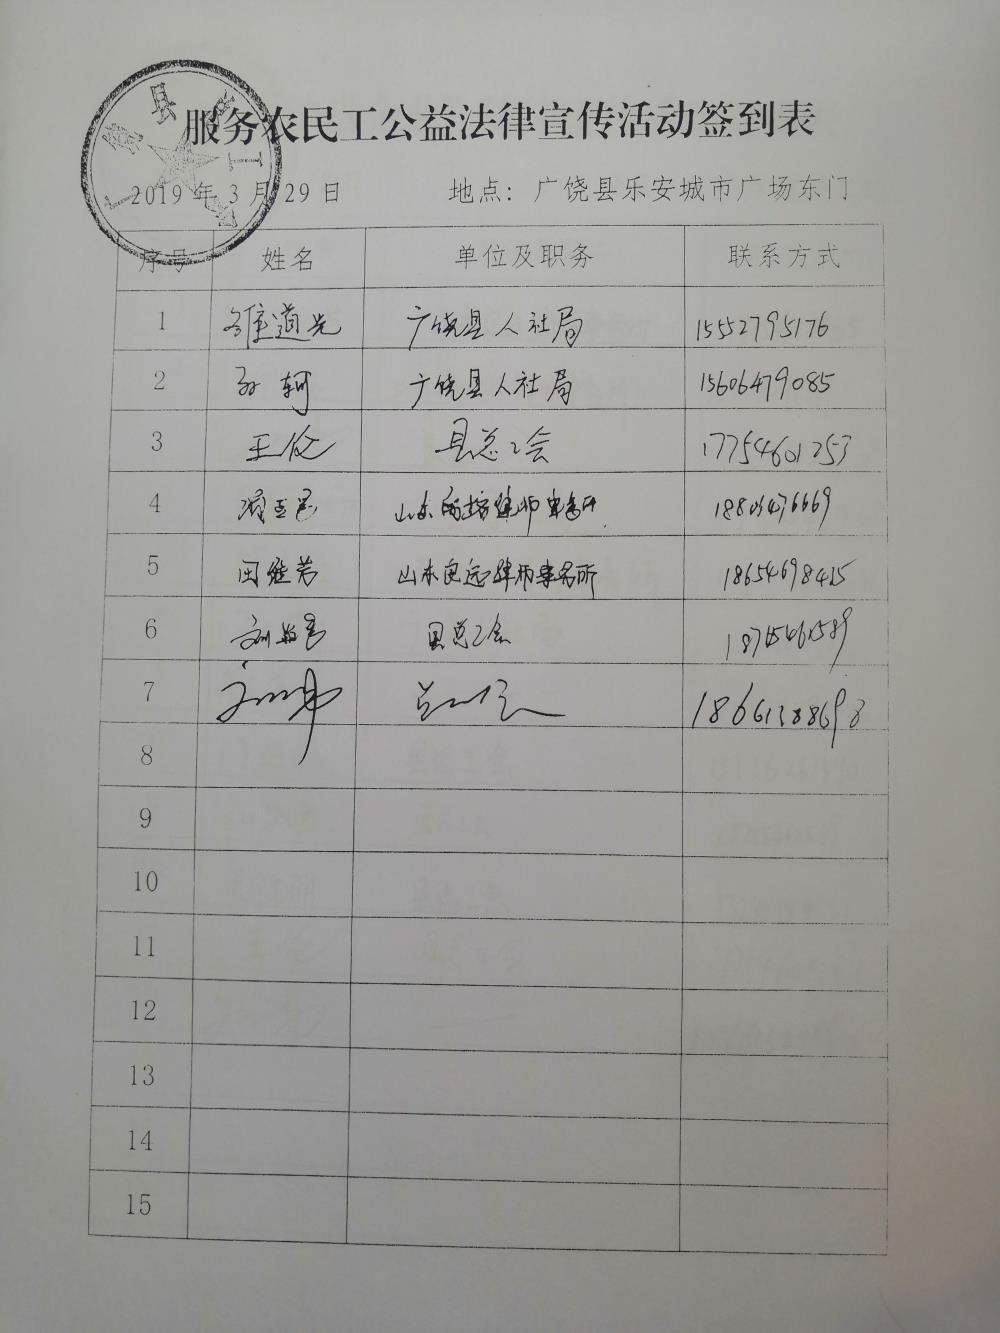 服务农民工公益法律宣传活动签到表
2019 年 3 月 29 日 地点：广饶县乐安城市广场东门
序号 姓名 单位及职务 联系方式
1 道光 广饶县人社局 15552795176
2 孙轲 广饶县人社局 15606479085
3 王伦 县总工会 17754601253
4 山东 律师事务所
5 闫继芳 山东 律师事务所 18654698415
6 刘 县总工会
7 18661388698
8
9
10
11
12
13
14
15